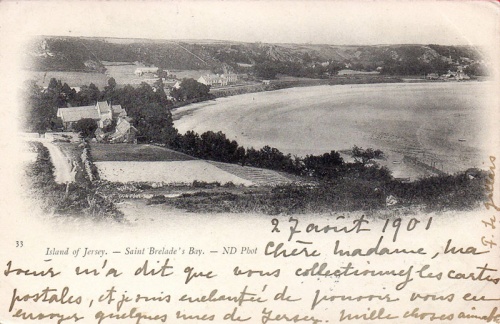 33
Island of Jersey. — Saint Brelade's Bay. — ND Phot
27 août 1901
Chère Madame, Ma
soeur m'a dit que vous collectionnez les cartes
postales, et je suis enchantée de pouvoir vous en
envoyer quelques unes de Jersey. Mille choses